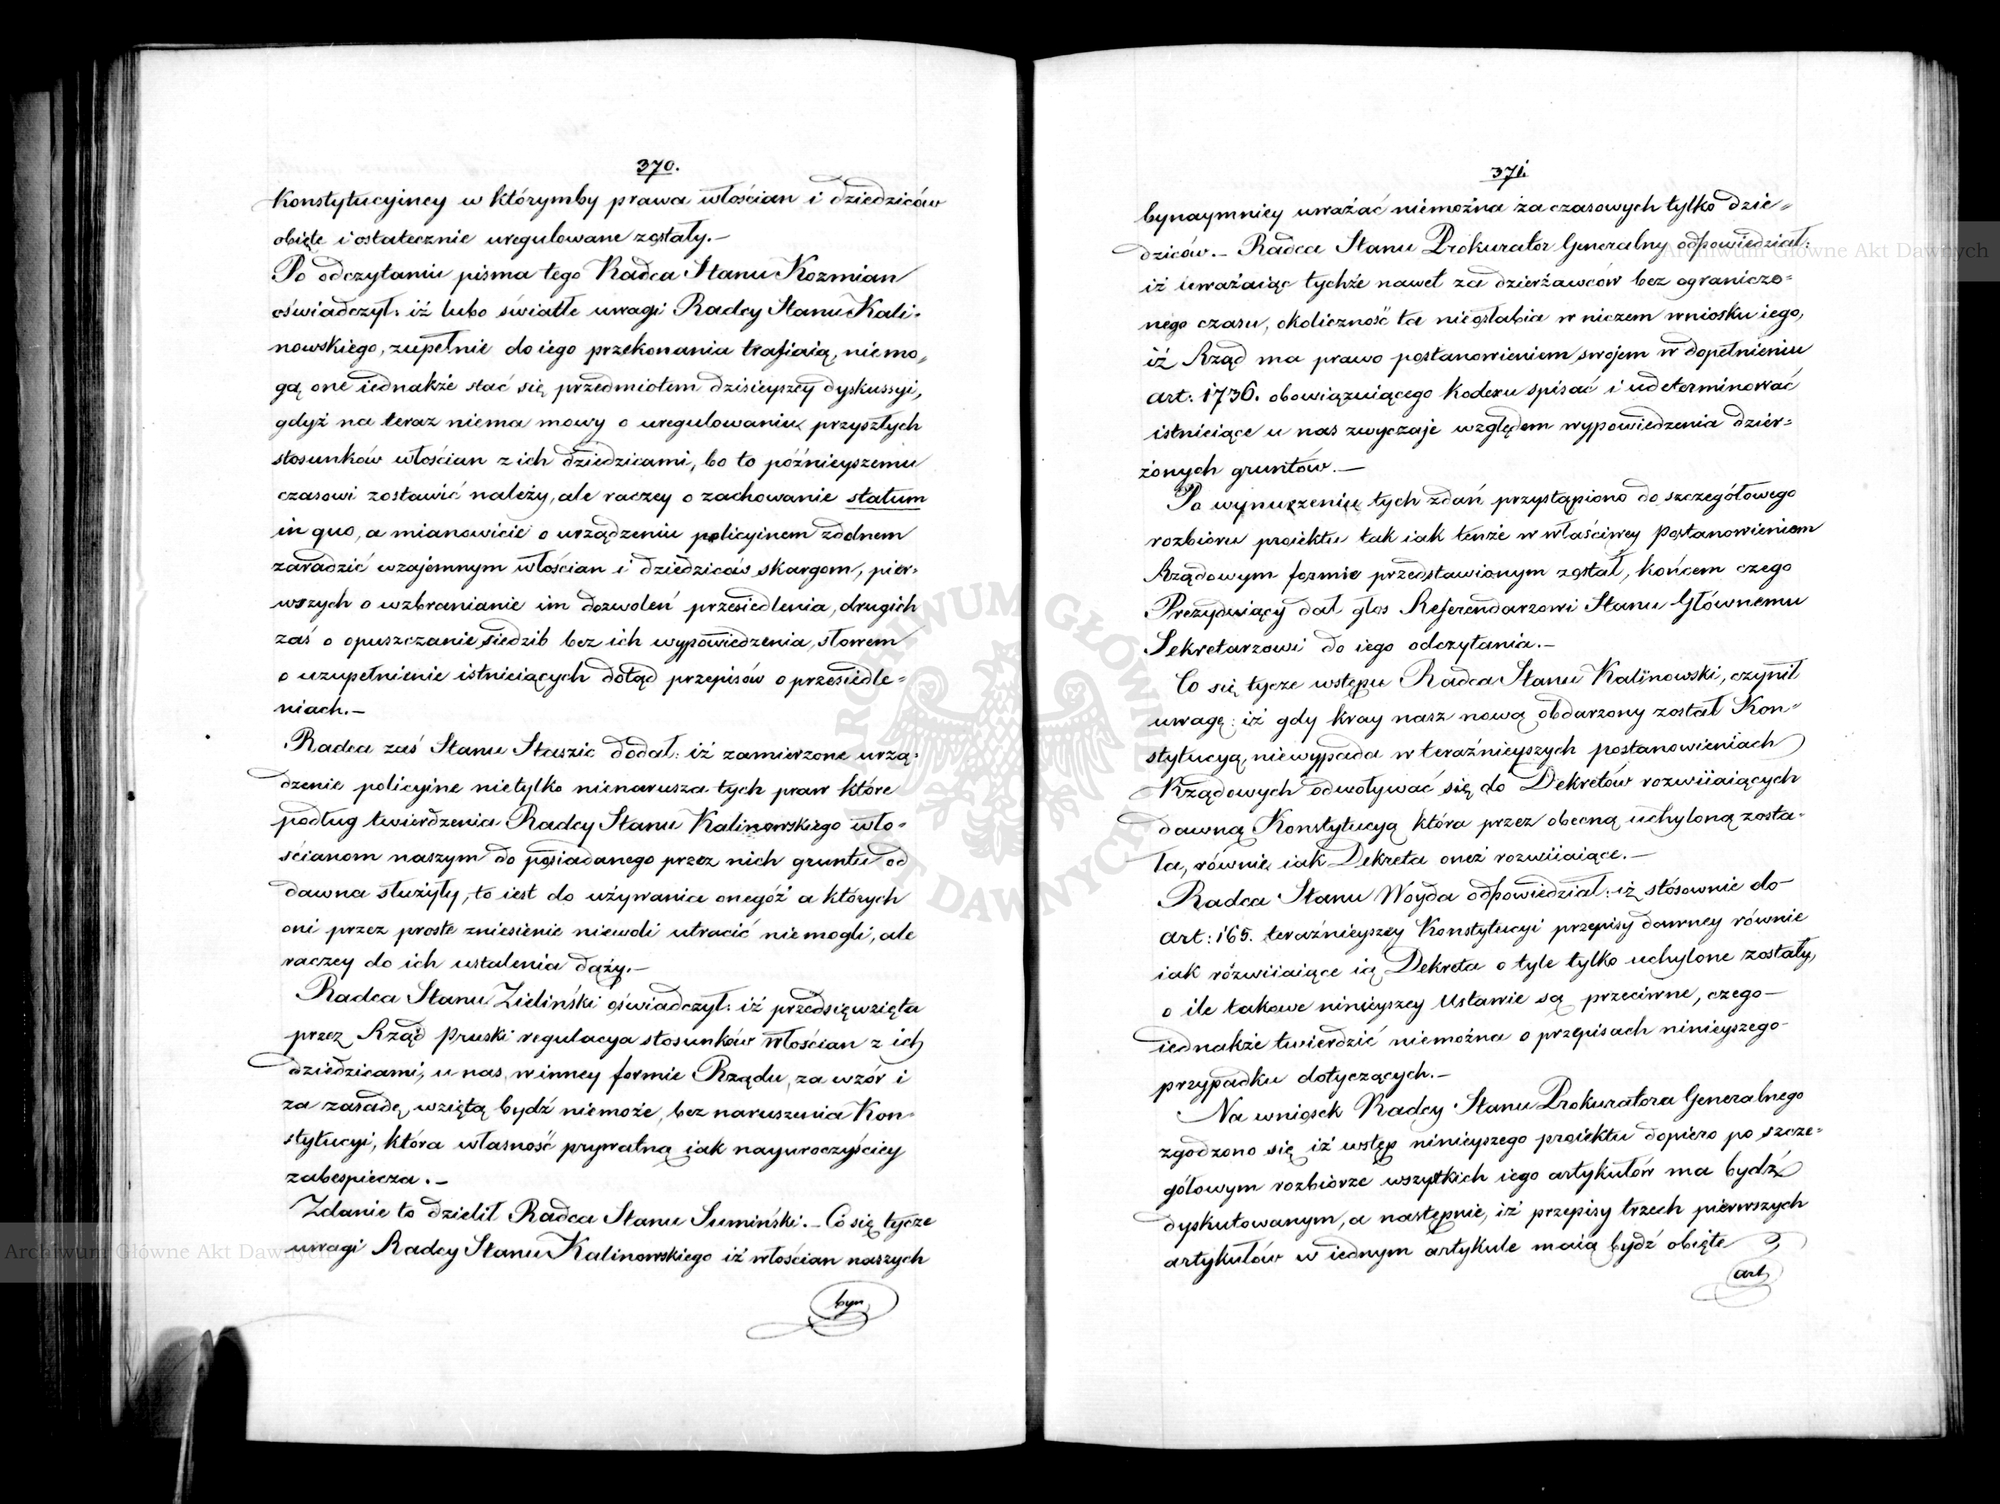 370.
Konstytucyiney w którymby prawa włościan i dziedziców
obięte i ostatecznie uregulowane zostały.—
Po odczytaniu pisma tego Radca Stanu Kozmian
oświadczył: iż lubo światłe uwagi Radcy Stanu Kali-
nowskiego, zupełnie do iego przekonania trafiaią, niemo„
gą one iednakże stać się przedmiotem dzisieyszey dyskussyi,
gdyż na teraz niema mowy o uregulowaniu przyszłych
stosunków włościan z ich dziedzicami, bo to późnieyszemu
czasowi zostawić należy, ale raczey o zachowanie statum
in quo, a mianowicie o urządzeniu policyinem zdolnem
zaradzić wzajemnym włościan i dziedziców skargom, pier-
wszych o wzbranianie im dozwoleń przesiedlenia, drugich
zaś o opuszczanie siedzib bez ich wypowiedzenia, słowem
o uzupełnienie istnieiących dotąd przepisów o przesiedle-
niach.—
Radca zaś Stanu Staszic dodał: iż zamierzone urzą-
dzenie policyine nietylko nienarusza tych praw które
podług twierdzenia Radcy Stanu Kalinowskiego wło-
ścianom naszym do posiadanego przez nich gruntu od
dawna służyły, to iest do używania onegóż a których
oni przez proste zniesienie niewoli utracić niemogli, ale
raczey do ich ustalenia dąży.—
Radca Stanu Zieliński oświadczył: iż przedsięwzięta
przez Rząd Pruski regulacya stosunków włościan z ich
dziedzicami, u nas w inney formie Rządu, za wzór i
za zasadę wziętą bydź niemoże, bez naruszenia Kon-
stytucyi, która własność prywatną iak nayuroczyściey
zabespiecza.—
Zdanie to dzielił Radca Stanu Sumiński.— Co się tycze
uwagi Radcy Stanu Kalinowskiego iż włościan naszych
byn
371.
bynaymniey uważać niemożna za czasowych tylko dzie„
dziców.— Radca Stanu Prokurator Generalny odpowiedział:
iż uważaiąc tychże nawet za dzierżawców bez ograniczo-
nego czasu, okoliczność ta nieosłabia w niczem wniosku iego,
iż Rząd ma prawo postanowieniem swojem w dopełnieniu
art: 1736. obowiązuiącego kodexu spisać i udeterminować
istnieiące u nas zwyczaje względem wypowiedzenia dzier-
żonych gruntów.—
Po wynurzeniu tych zdań przystąpiono do szczegółowego
rozbioru proiektu tak iak tenże w właściwey Postanowieniom
Rządowym formie przedstawionym został, końcem czego
Prezyduiący dał głos Referendarzowi Stanu Głównemu
Sekretarzowi do iego odczytania.—
Co się tycze wstępu Radca Stanu Kalinowski, czynił
uwagę: iż gdy kray nasz nową obdarzony został Kon-
stytucyą, niewypada w teraźnieyszych postanowieniach
Rządowych odwoływać się do Dekretów rozwiiaiących
dawną Konstytucyą która przez obecną uchyloną zosta-
ła, równie iak Dekreta oneż rozwiiaiące.—
Radca Stanu Woyda odpowiedział: iż stósownie do
art: 165. teraźnieyszey Konstytucyi przepisy dawney równie
iak rózwiiaiące ią Dekreta o tyle tylko uchylone zostały,
o ile takowe ninieyszey Ustawie są przeciwne, czego
iednakże twierdzić niemożna o przepisach ninieyszego
przypadku dotyczących.—
Na wniosek Radcy Stanu Prokuratora Generalnego
zgodzono się iż wstęp ninieyszego proiektu dopiero po szcze-
gółowym rozbiorze wszystkich iego artykułów ma bydź
dyskutowanym, a następnie, iż przepisy trzech pierwszych
artykułów w iednym artykule maią bydź obięte
art
Archiwum Główne Akt Dawnych
Archiwum Główne Akt Dawnych
ARCHIWUM GŁÓWNE AKT DAWNYCH